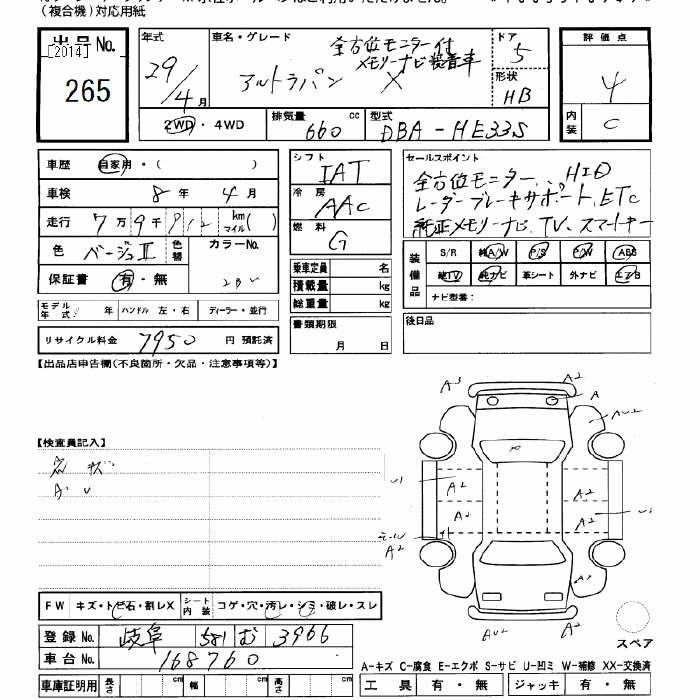 (複合機)対応用紙
出品No.
[2014]
265
年式
29/4月
車名・グレード
全方位モニター付
メモリーナビ装着車
アルトラパン X
ドア
5
形状
HB
評価点
4
内装
C
2WD・4WD
排気量 660 cc
型式 DBA-HE33S
車歴 自家用・( )
車検 8年 4月
走行 7万9千912 km マイル( )
色 ベージュII 色替
カラーNo.
保証書 有・無
モデル年式 年 ハンドル 左・右 ディーラー・並行
リサイクル料金 7950 円 預託済
シフト
IAT
冷房
AAC
燃料
G
乗車定員 名
積載量 kg
総重量 kg
書類期限
月 日
セールスポイント
全方位モニター、HID
レーダーブレーキサポート、ETC
純正メモリーナビ、TV、スマートキー
装備品
S/R 純A/W P/S P/W ABS
純TV 純ナビ 革シート 外ナビ エアB
ナビ型番:
後日品
【出品店申告欄(不良箇所・欠品・注意事項等)】
【検査員記入】
A3
A2
A
AU2
U1
A2
A2
A2
A2
A2
A2
AU2
A2
スペア
FW キズ・トビ石・割レX シート内装 コゲ・穴・汚レ・シミ・破レ・スレ
登録No. 岐阜 581 む 3966
車台No. 168760
A-キズ C-腐食 E-エクボ S-サビ U-凹ミ W-補修 XX-交換済
車庫証明用 長さ cm 幅 cm 高さ cm
工具 有・無 ジャッキ 有・無